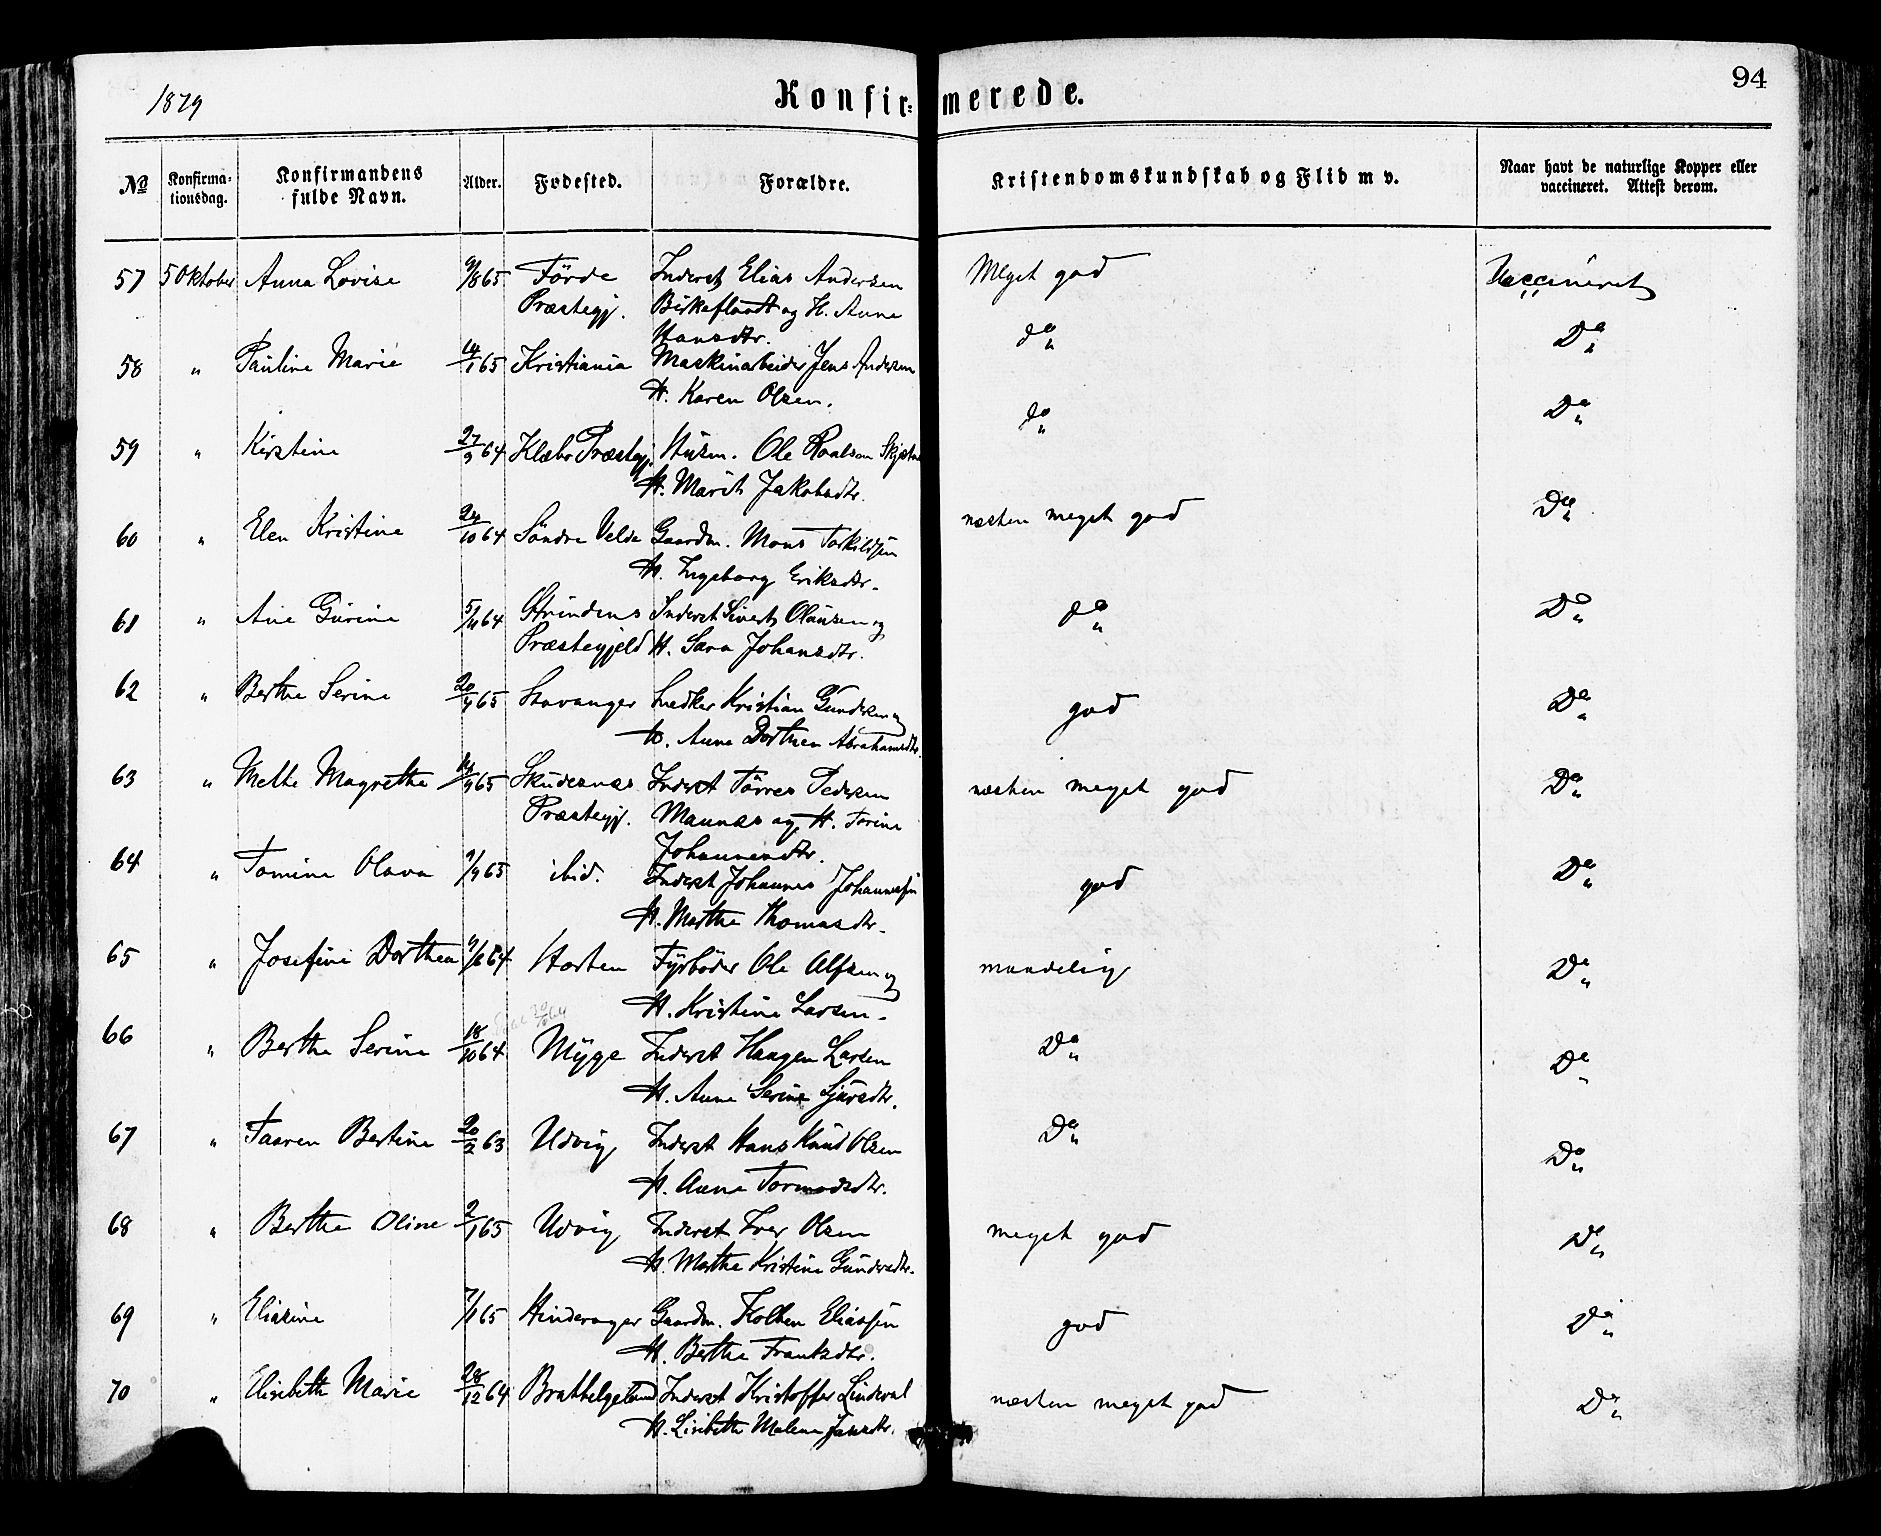 1879 Konfir= merede. 94
No Konfirma- tionsdag. Konfirmandens fulde Navn. Alder. Fødested. Forældre. Kristendomskundskab og Flid m v. Naar havt de naturlige Kopper eller vaccineret. Attest derom.
57 5 Oktober Anna Lovise 9/8 65 Förde Inderst Elias Andersen Meget god Vaccineret
Præstegj. Birkeflandt og H. Anne
Hansdtr.
58 " Pauline Marie 14/1 65 Kristiania Maskinarbeider Jens Andersen do " Do "
H. Karen Olsen.
59 " Kirstine 27/9 64 Klæbo Præstegj. Husm. Ole Roalsen do " Do "
H. Marit Jakobsdtr.
60 " Elen Kristine 24/10 64 Söndre Velde Gaardm. Mons Torkildsen næsten meget god Do "
H. Ingeborg Eriksdtr.
61 " Ane Gurine 5/11 64 Strindens Inderst Sivert Olausen og do " Do "
Præstegjeld H. Sara Johansdtr.
62 " Berthe Serine 20/4 65 Stavanger Snedker Kristian Gundersen og god Do "
H. Anne Dorthea Abrahamsdtr.
63 " Mette Magrethe 65 Skudesnæs Inderst Törres Pedersen næsten meget god Do "
Præstegj. Maunæs og H. Torine
Johannesdtr.
64 " Tomine Olava 9/4 65 ibid. Inderst Johannes Johannessen god Do "
H. Marthe Thomasdtr.
65 " Josefine Dorthea 64 Horten Fyrböder Ole Alfsen og maadelig Do "
H. Kristine Larsen.
66 " Berthe Serine 18/10 64 Myge Inderst Haagen Larsen Do " Do "
H. Anne Serine Sjursdtr.
67 " Taaren Bertine 20/2 63 Udvig Inderst Hans Knud Olsen Do " Do "
H. Anne Tormodsdtr.
68 " Berthe Oline 2/1 65 Udvig Inderst Iver Olsen meget god Do "
H. Marthe Kristine Gundersdtr.
69 " Eliasine 7/1 65 Hinderager Gaardm. Holten Eliassen god Do "
H. Berthe Frantsdtr.
70 " Elisebeth Marie 28/12 64 Brattelgeland Inderst Kristoffer næsten meget god Do "
H. Lisebeth Malene Jansdtr.